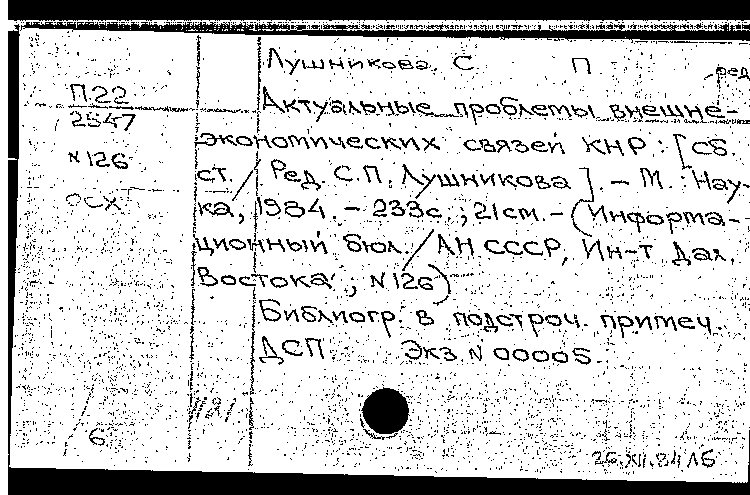 Лушникова С П ред
П22
2547
N 126
ОСХ
Актуальные проблемы внешне-
экономических связей КНР : [Сб.
ст. / Ред. С.П. Лушникова]. - М. : Нау-
ка, 1984. - 233с.; 21см. - (Информа-
ционный бюл. / АН СССР, Ин-т Дал.
Востока ; N 126)
Библиогр. в подстроч. примеч.
ДСП. Экз N 00005.
1121
6
26.XII.84 ЛБ